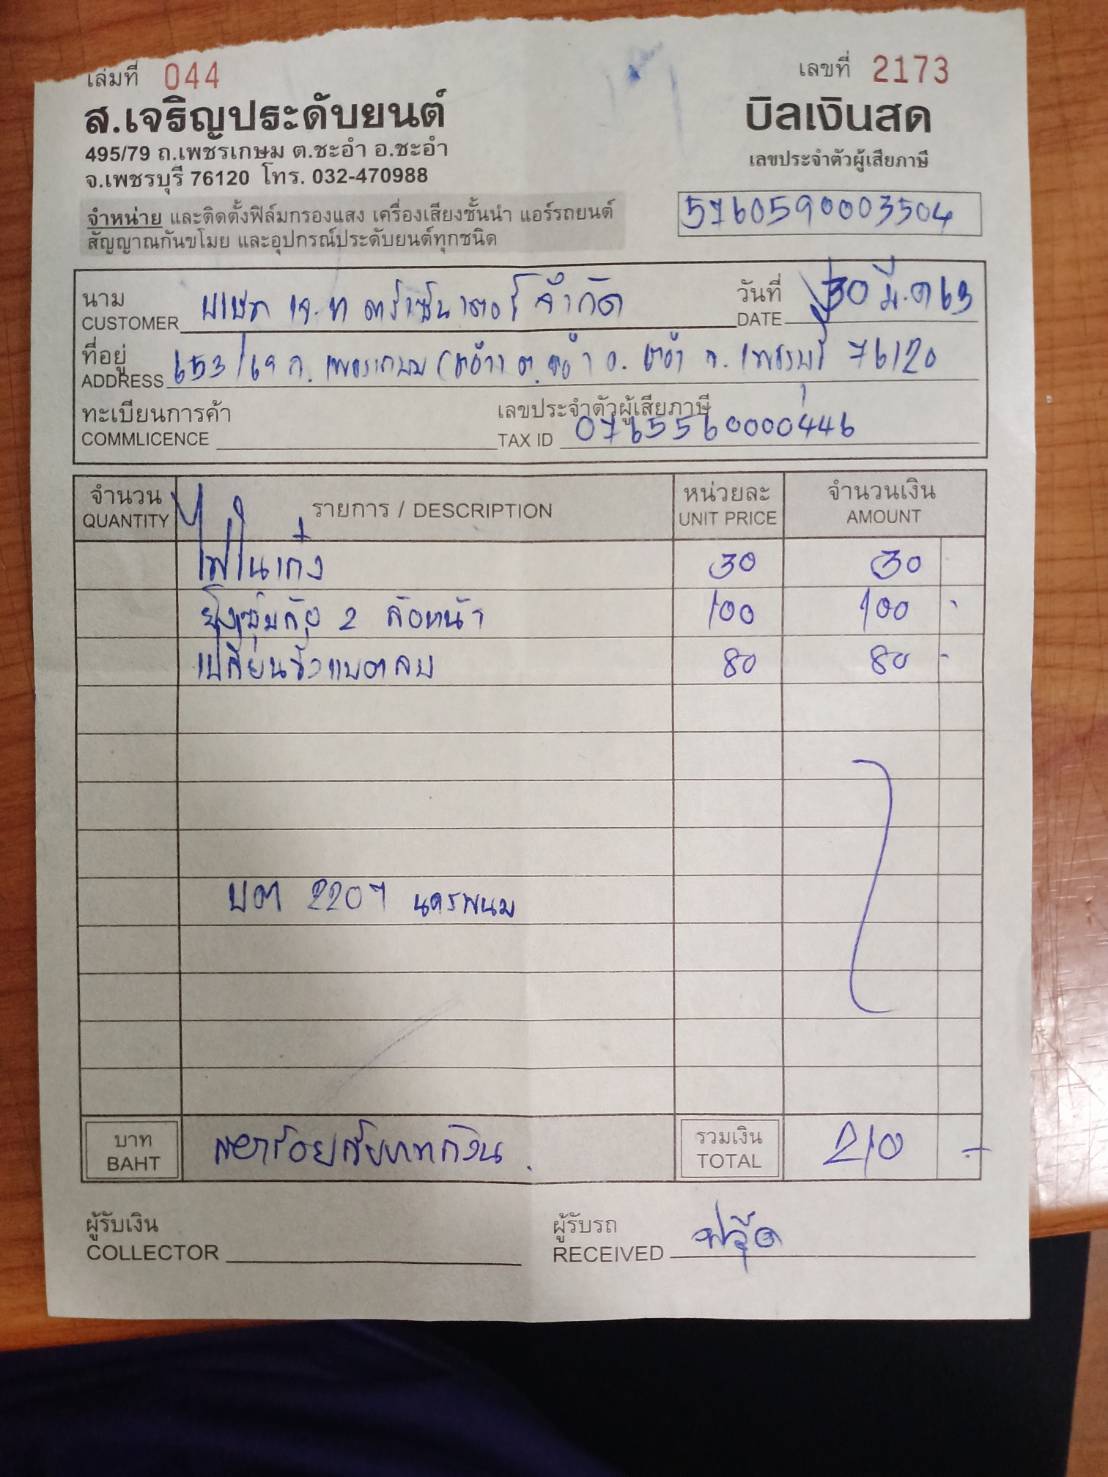 เล่มที่ 044
เลขที่ 2173
ส.เจริญประดับยนต์
บิลเงินสด
495/79 ถ.เพชรเกษม ต.ชะอำ อ.ชะอำ
จ.เพชรบุรี 76120 โทร. 032-470988
เลขประจำตัวผู้เสียภาษี
5760590003504
จำหน่าย และติดตั้งฟิล์มกรองแสง เครื่องเสียงชั้นนำ แอร์รถยนต์
สัญญาณกันขโมย และอุปกรณ์ประดับยนต์ทุกชนิด
นาม จำกัด วันที่ 30 มี.ค 63
CUSTOMER DATE
ที่อยู่ 76120
ADDRESS
ทะเบียนการค้า เลขประจำตัวผู้เสียภาษี
COMMLICENCE TAX ID 0765560000446
จำนวน รายการ / DESCRIPTION หน่วยละ จำนวนเงิน
QUANTITY UNIT PRICE AMOUNT
ไฟในเก๋ง 30 30
2 ล้อหน้า 100 100 -
เปลี่ยนขั้วแบตลบ 80 80 -
บต 2207 นครพนม
บาท สองร้อยสิบบาทถ้วน รวมเงิน 210 -
BAHT TOTAL
ผู้รับเงิน ผู้รับรถ
COLLECTOR RECEIVED